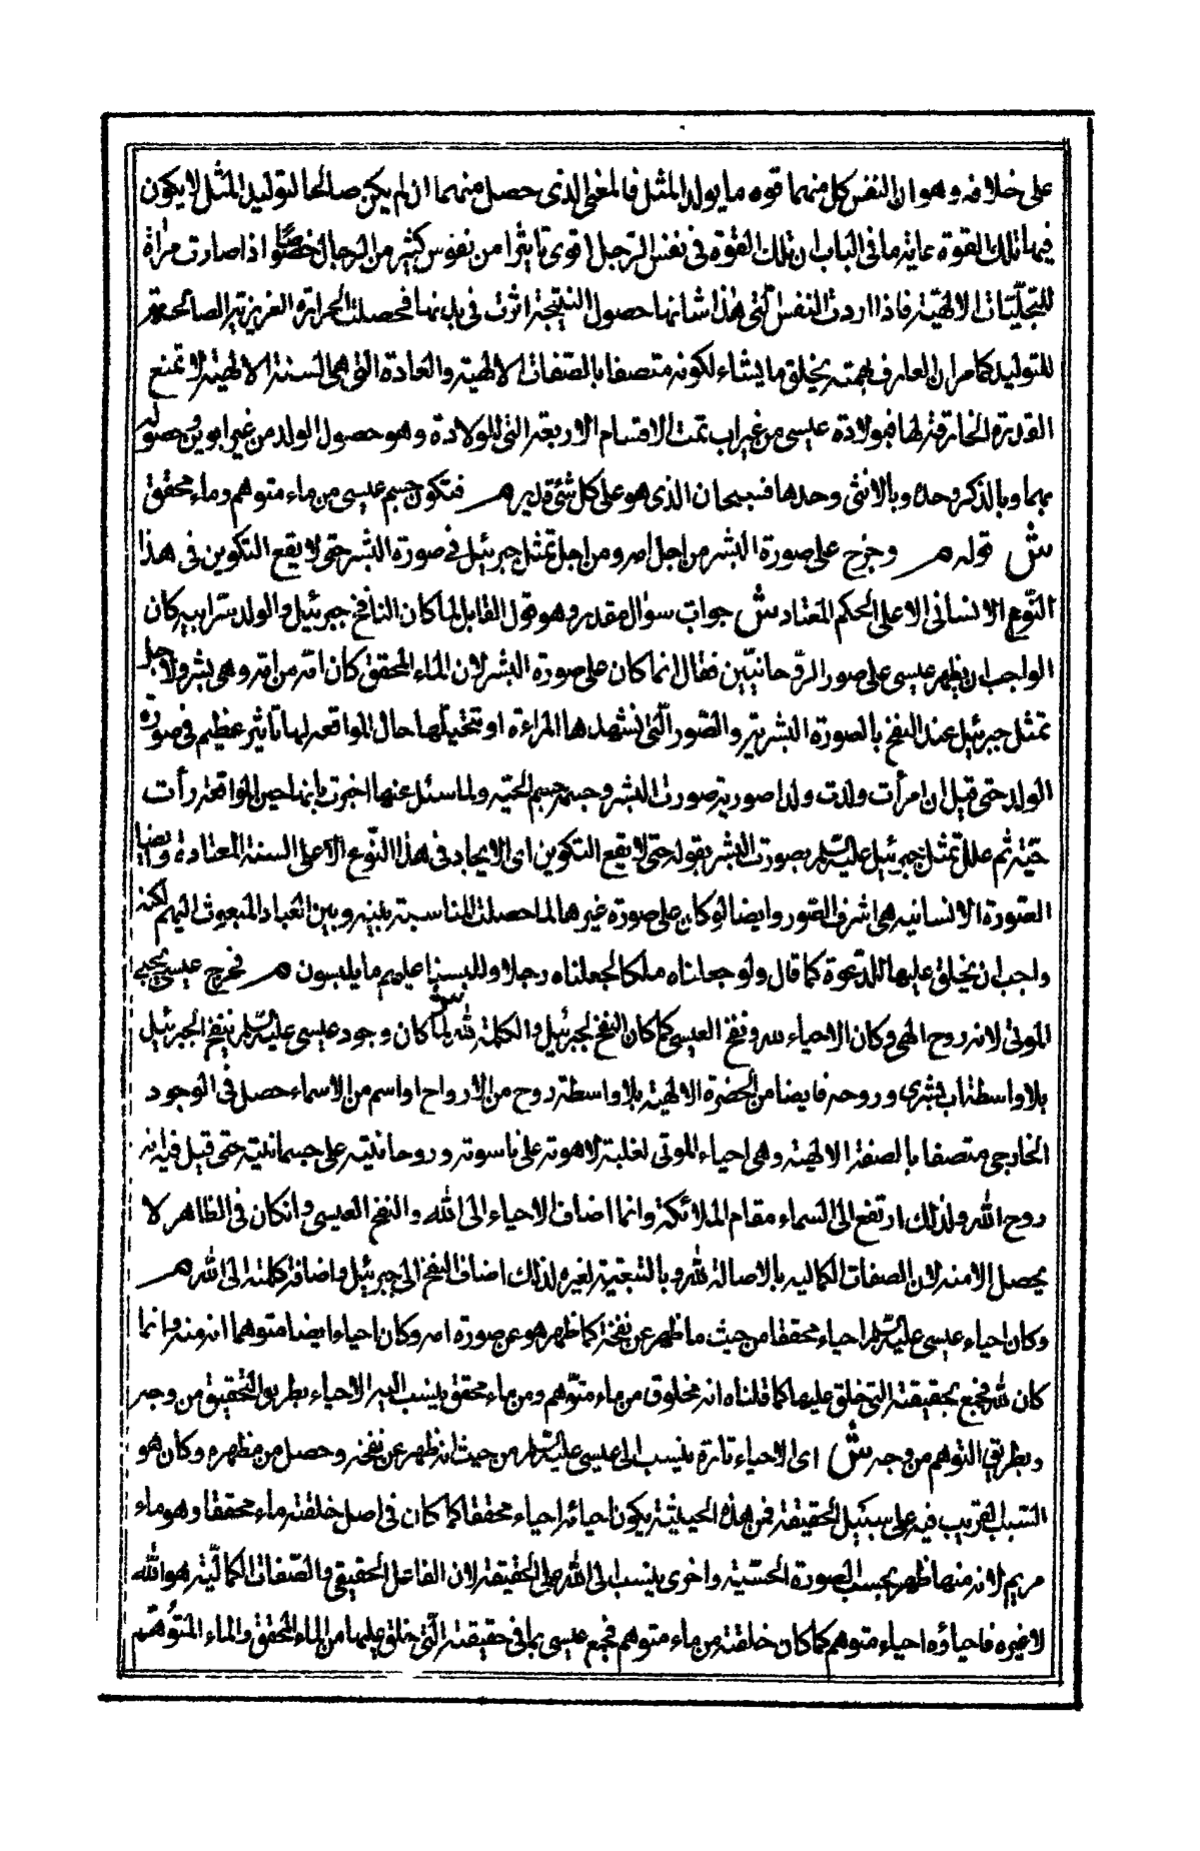 على خلافه وهو ان النفس كل منهما قوه ما يولد المثل فالمغى الذى حصل منهما ان لم يكن صالحا لتوليد المثل لا يكون
فيها تلك القوة غاية ما فى الباب ان تلك القوة فى نفس الرّجل اقوى تاثيرا من نفوس كثير من الرجال خصوصًا اذا صارت مرآة
للتجلّيات الالهيّة فاذا اردت النفس الّتى هذا شانها حصول النتيجة اثرت فى بدنها فحصلت الحرارة الغريزية الصالحة
للتوليد كما مر ان العارف بهمته يخلق ما يشاء لكونه متصفا بالصّفات الالهيّة والعادة التى هى السنة الالهيّة لا تمنع
القدرة الخارقة لها فبولادة عيسى من غير اب تمت الاقسام الاربعة التى للولادة وهو حصول الولد من غير ابوين وحصوله
بهما وبالذكر وحده وبالانثى وحدها فسبحان الذى هو على كل شئ قدير م فتكون جسم عيسى من ماء متوهم وماء محقق
ش قوله م وخرج على صورة البشر من اجل امه ومن اجل تمثل جبرئيل فى صورة البشر حتى لا يقع التكوين فى هذا
النّوع الانسانى الا على الحكم المعتاد ش جواب سؤال مقدر وهو قول القايل لما كان النافخ جبرئيل والولد سرّ ابيه كان
الواجب ان يظهر عيسى على صور الرّوحانيّين فقال انما كان على صورة البشر لان الماء المحقق كان امّه من امّه وهى بشر ولاجل
تمثل جبرئيل عند النفخ بالصورة البشرية والصّور الّتى تشهدها المراءة او تتخيلها حال المواقعة لها تاثير عظيم فى صورة
الولد حتى قيل ان امرأت ولدت ولدا صورته صورت البشر وجسمه جسم الحيّة ولما سئل عنها اخبرت بانها حين المواقعة رأت
حيّة ثم علل تمثل جبرئيل عليه السّلم بصورت البشر بقوله حتى لا يقع التكوين اى الايجاد فى هذا النّوع الا على السنة المعتادة وايضا
الصّورة الانسانيه هى اشرف الصّور وايضا لو كان على صورة غيرها لما حصلت المناسبة بينه وبين العباد المبعوث اليهم لكنه
واجب ان يخلق عليها للدّعوة كما قال ولو جعلناه ملكا لجعلناه رجلا وللبسنا عليهم ما يلبسون م فخرج عيسى يحيى
الموتى لانه روح الهى وكان الاحياء لله ونفخ العيسى كما كان النفخ لجبرئيل والكلمة لله ش لما كان وجود عيسى عليه السّلم بنفخ الجبرئيل
بلا واسطة اب بشرى وروحه فايضا من الحضرة الالهيّة بلا واسطة روح من الارواح او اسم من الاسماء حصل فى الوجود
الخارجى متصفا بالصفة الالهيّة وهى احياء الموتى لغلبة لاهوته على ناسوته وروحانيّته على جسمانيّته حتى قيل فيه انه
روح الله ولذلك ارتفع الى السّماء مقام الملائكة وانما اضاف الاحياء الى الله والنفخ العيسى وان كان فى الظاهر لا
يحصل الا منه لان الصفات الكماليه بالاصالة لله وبالتبعيّة لغيره لذلك اضاف النفخ الى جبرئيل واضافة كلمته الى الله م
وكان احياء عيسى عليه السّلم احياء محققا من حيث ما ظهر عن نفخة كما ظهر هو عن صورة امه وكان احياؤه ايضا متوهما انه منه وانما
كان لله فجمع بحقيقته التى خلق عليها كما قلناه انه مخلوق من ماء متوهم ومن ماء محقق ينسب اليه الاحياء بطريق التحقيق من وجه
وبطريق التوهم من وجه ش اى الاحياء تارة ينسب الى عيسى عليه السّلم من حيث انه ظهر عن نفخه وحصل من مظهره وكان هو
السّبب القريب فيه على سبيل الحقيقة فمن هذه الحيثيّة يكون احيائه احياء محققا كما كان فى اصل خلقته ماء محققا وهو ماء
مريم لانه منها ظهر بحسب الصورة الحسّيّة واخرى ينسب الى الله على الحقيقة لان الفاعل الحقيقى والصّفات الكماليّة هو الله
لا غيره فاحياؤه احياء متوهم كما كان خلقته من ماء متوهم فجمع عيسى بما فى حقيقته الّتى خلق عليها من الماء المحقق والماء المتوهّم